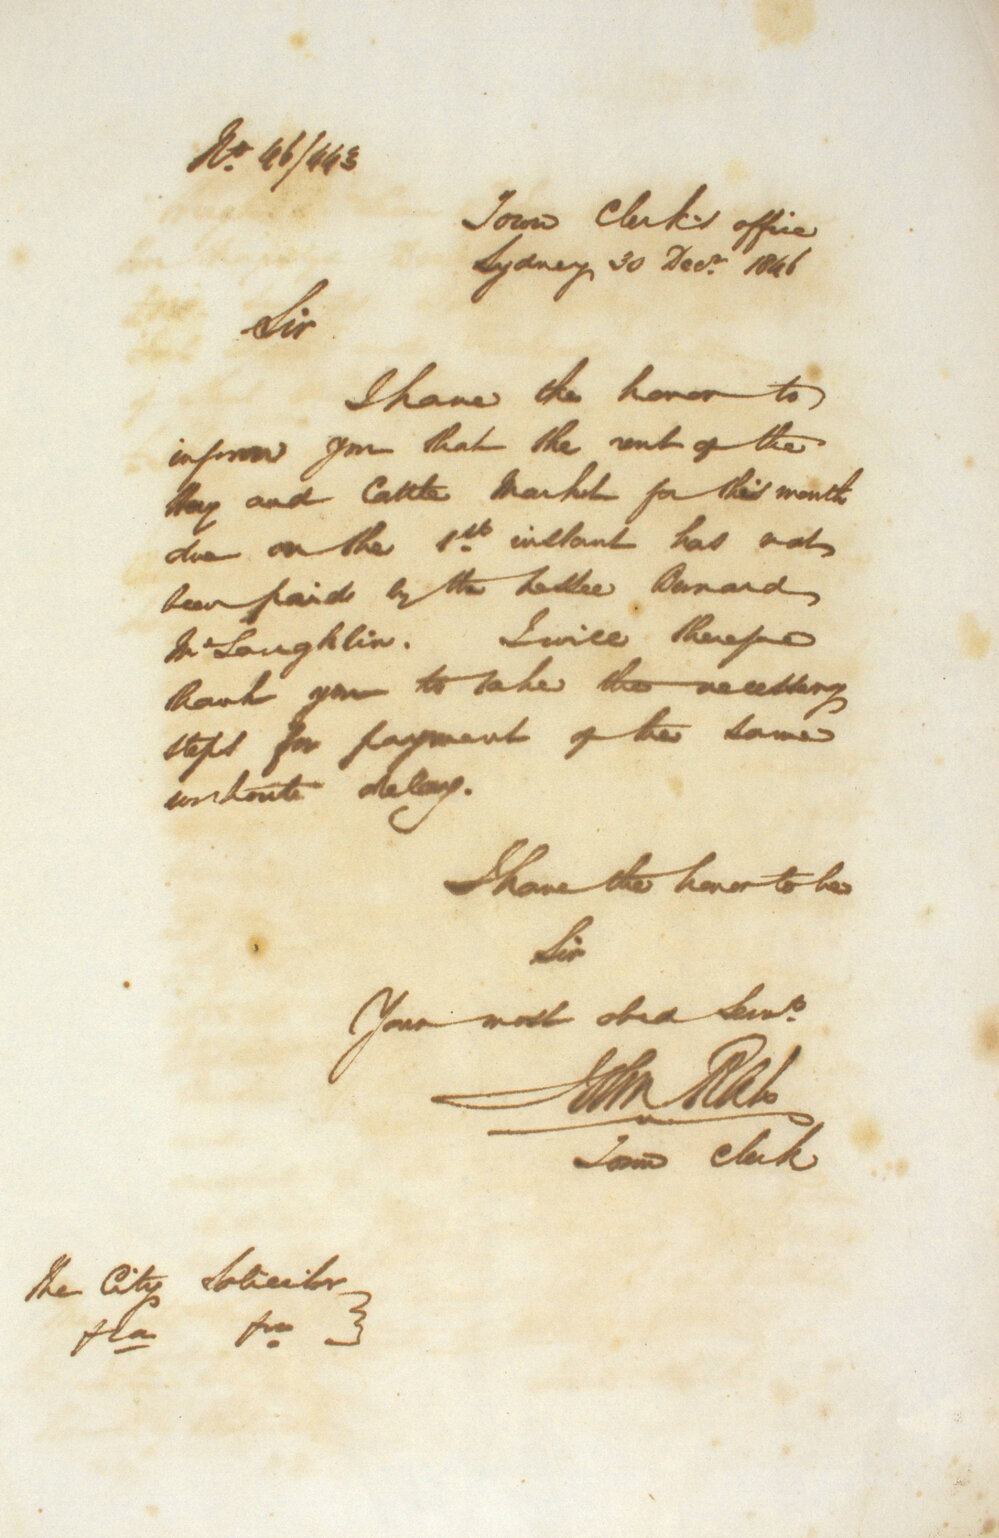 No. 46/443
Town Clerk's office
Sydney 30 Decr. 1846
Sir
I have the honor to
inform you that the rent of the
Hay and Cattle Market for this month
due on the 1st instant has not
been paid by the Lessee Bernard
McLaughlin. I will therefore
thank you to take the necessary
steps for payment of the same
without delay.
I have the honor to be
Sir
Your most obed Servt.
John Rae
Town Clerk
The City Solicitor